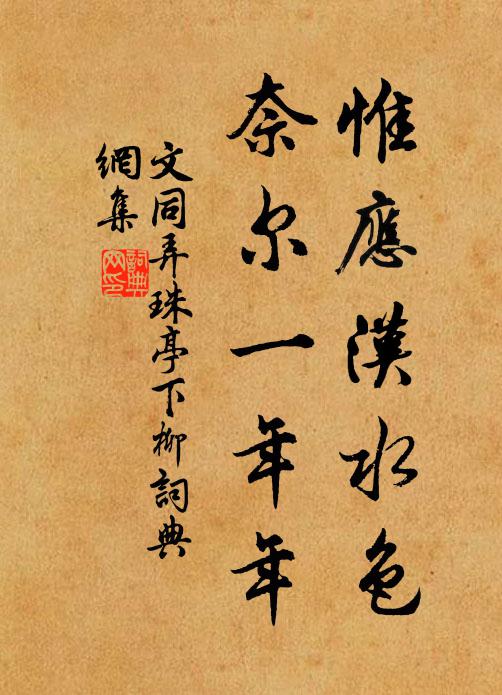 惟應漢水色
奈尔一年年
文同弄珠亭下柳詞典
網集
詞典
网印